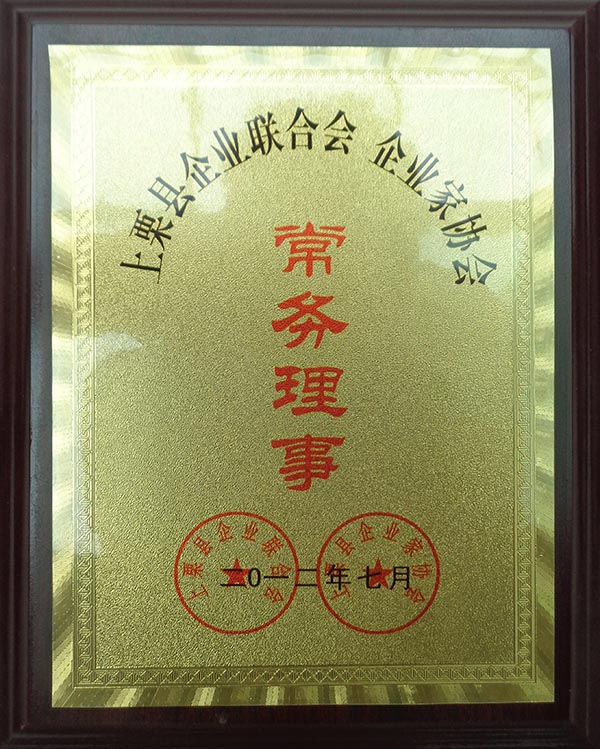 上栗县企业联合会 企业家协会
常
务
理
事
上栗县企业联合会
上栗县企业家协会
二0一二年七月